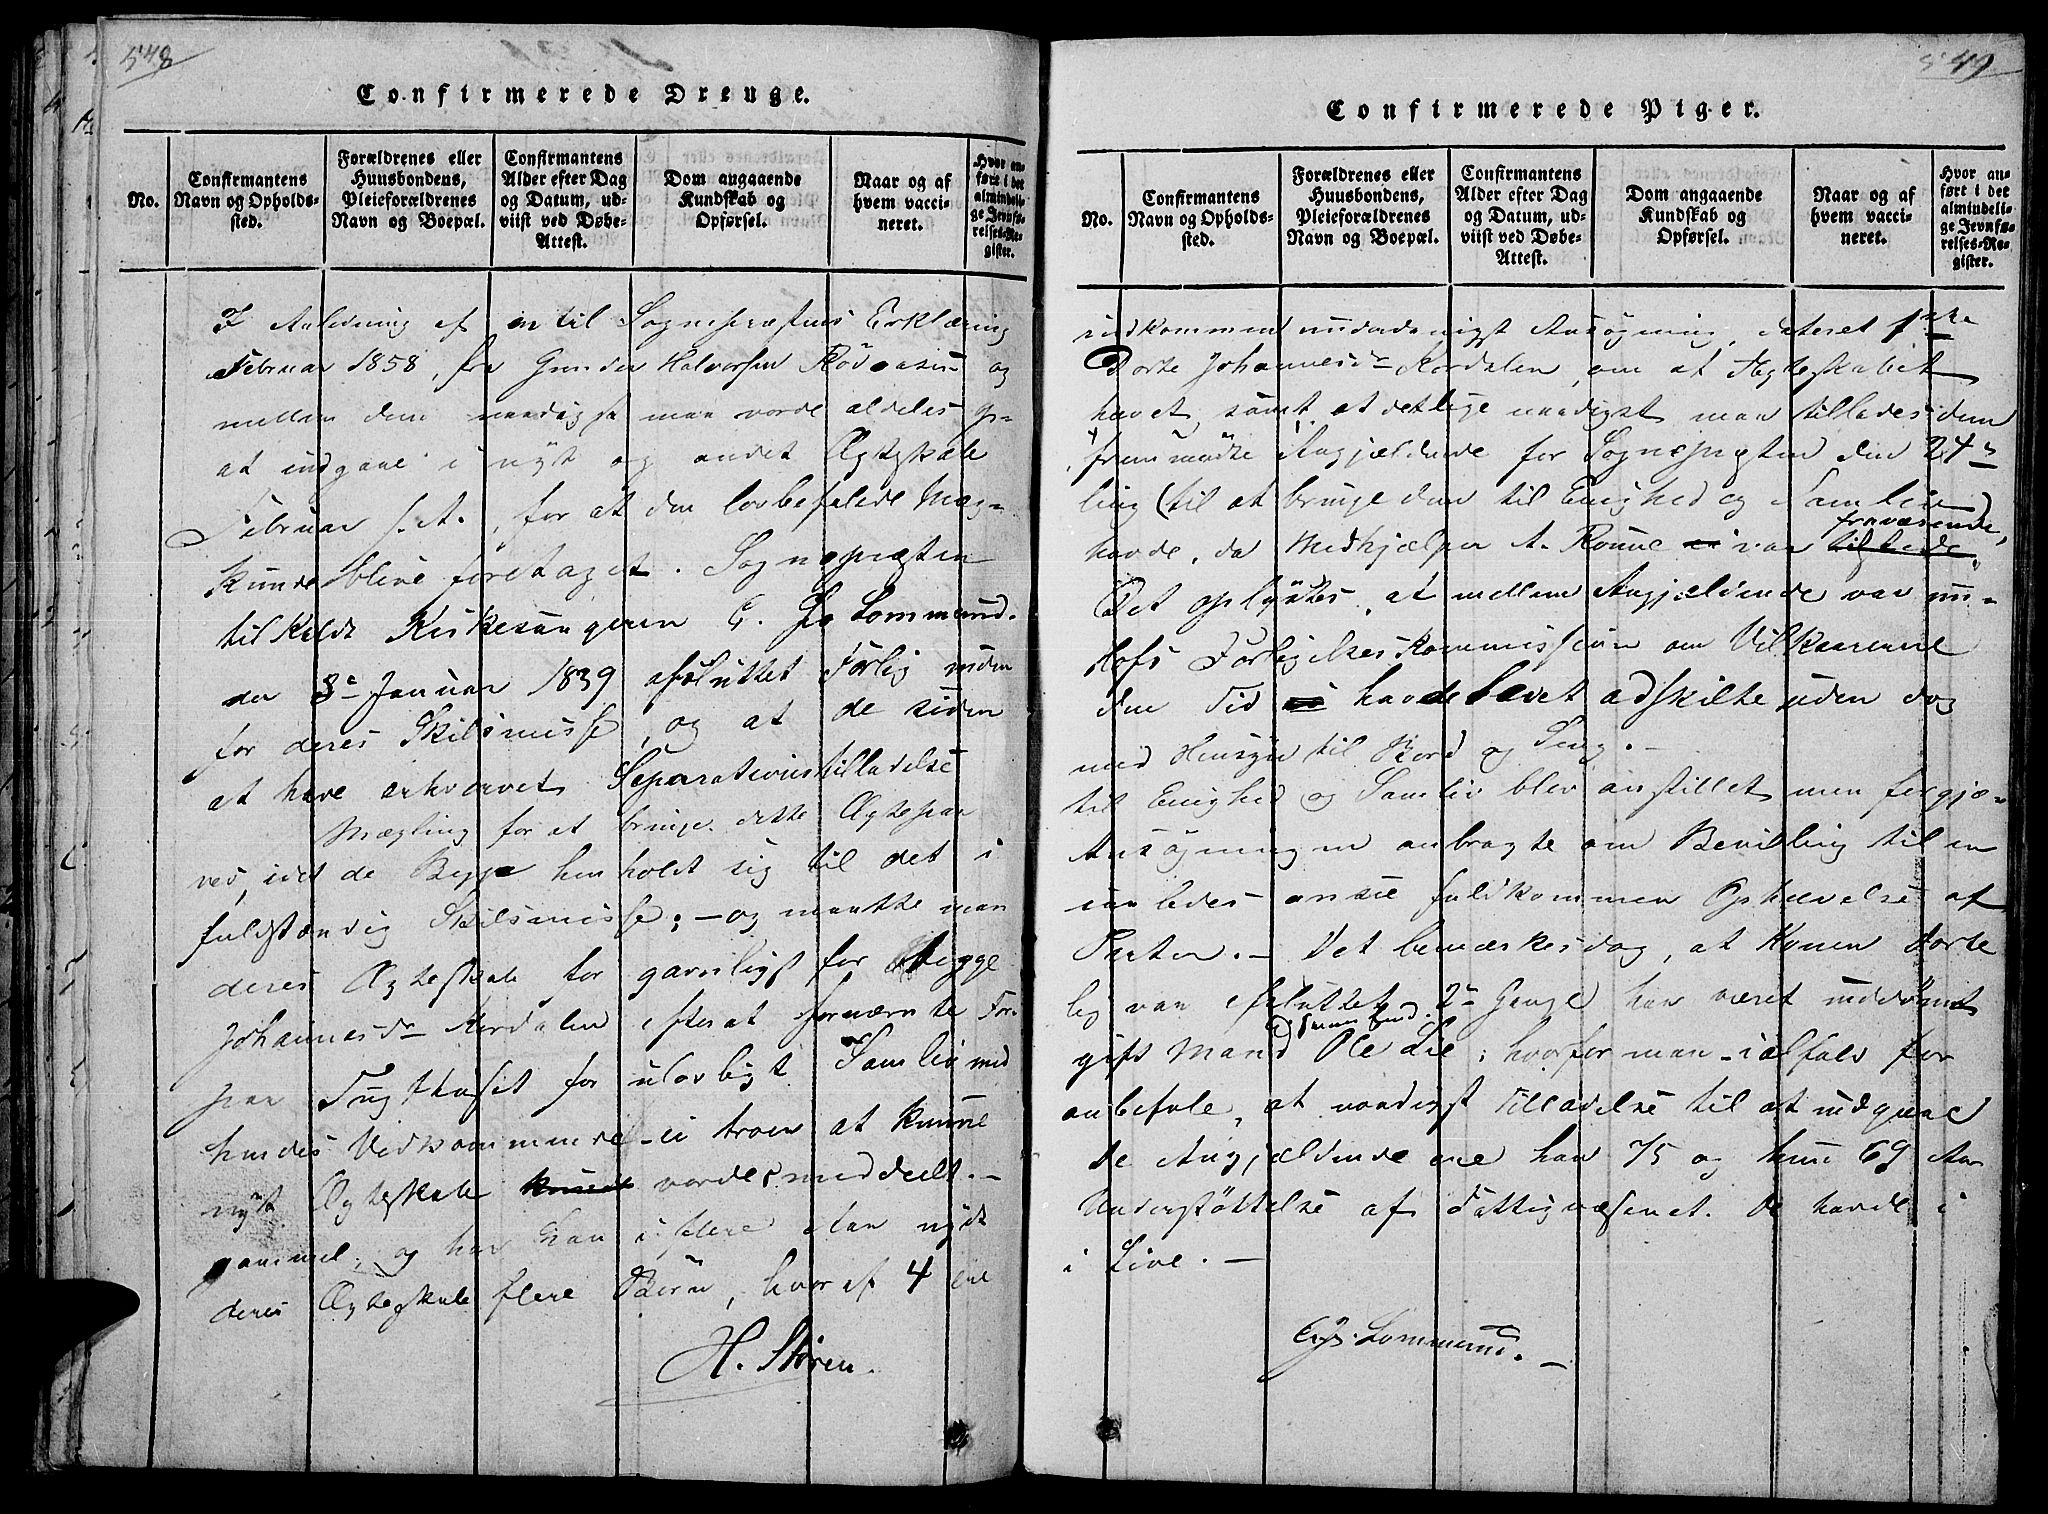 548
Confirmerede Drenge.
No.
Confirmantens Navn og Opholds-sted.
Forældrenes eller Huusbondens, Pleieforældrenes Navn og Boepæl.
Confirmantens Alder efter Dag og Datum, ud-viist ved Døbe-Attest.
Dom angaaende Kundskab og Opførsel.
Naar og af hvem vacci-neret.
Hvor an-ført i det almindeli-ge Jevnfø-relses-Re-gister.
I Anledning af en til Sognepræstens Erklæring
Februar 1858, fra Gunder Halvorsen og
mellem dem naadigst maa vorde aldeles op-
at indgaae i nyt og andet Ægteskab
Februar s. A., for at den lovbefalede Mæg-
kunde blive foretaget. Sognepræsten
tilkaldt Kirkesangeren G. Gs Lommund.
den 3e Januar 1839 afsluttet Forlig uden
for deres Skilsmisse, og at de siden
at have erhvervet Separationstilladelse
Mægling for at bringe dette Ægtepar
ves, idet de Begge henholdt sig til det i
fuldstændig Skilsmisse; – og maatte man
deres Ægteskab for gavnligst for Begge
Johannesdr efterat fornævnte For-
paa Tugthuset for ulovligt Samliv med
hendes Vedkommende – ei troer at kunne
nyt Ægteskab vorder meddeelt. –
gammel; og har han i flere Aar nydt
deres Ægteskab flere Børn, hvoraf 4 ere
H. Støren.
549
Confirmerede Piger.
No.
Confirmantens Navn og Opholds-sted.
Forældrenes eller Huusbondens, Pleieforældrenes Navn og Boepæl.
Confirmantens Alder efter Dag og Datum, ud-viist ved Døbe-Attest.
Dom angaaende Kundskab og Opførsel.
Naar og af hvem vacci-neret.
Hvor an-ført i det almindeli-ge Jevnfø-relses-Re-gister.
indkommen underdanigst Ansøgning, dateret
Dorte Johannesdr om at Ægteskabet
hævet, samt at det lige naadigst maa tillades dem
, fremmødte Angjældende for Sognepræsten den 24de
ling (til at bringe dem til Enighed og Samliv)
havde, da Medhjælper A. Rønne var fraværende,
Det oplystes, at mellem Angjældende var un-
Hofs Forligelseskommission om Vilkaarene
den Tid havde levet adskilte uden dog
med Hensyn til Bord og Seng. –
til Enighed og Samliv blev anstillet, men forgjæ-
Ansøgningen anbragte om Bevilling til en
saaledes ansee fuldkommen Ophævelse af
Parter. – Det bemærkes dog, at Konen Dorte
lig var afsluttet 2de Gange har været inddømt
gift Mand Ole Lie; hvorfor man – ialfald for
anbefale, at naadigst Tilladelse til at indgaae
De Angjældende ere han 75 og hun 69 Aar
Understøttelse af Fattigvæsenet. De havde i
i Live. –
G. Gs. Lommund. –